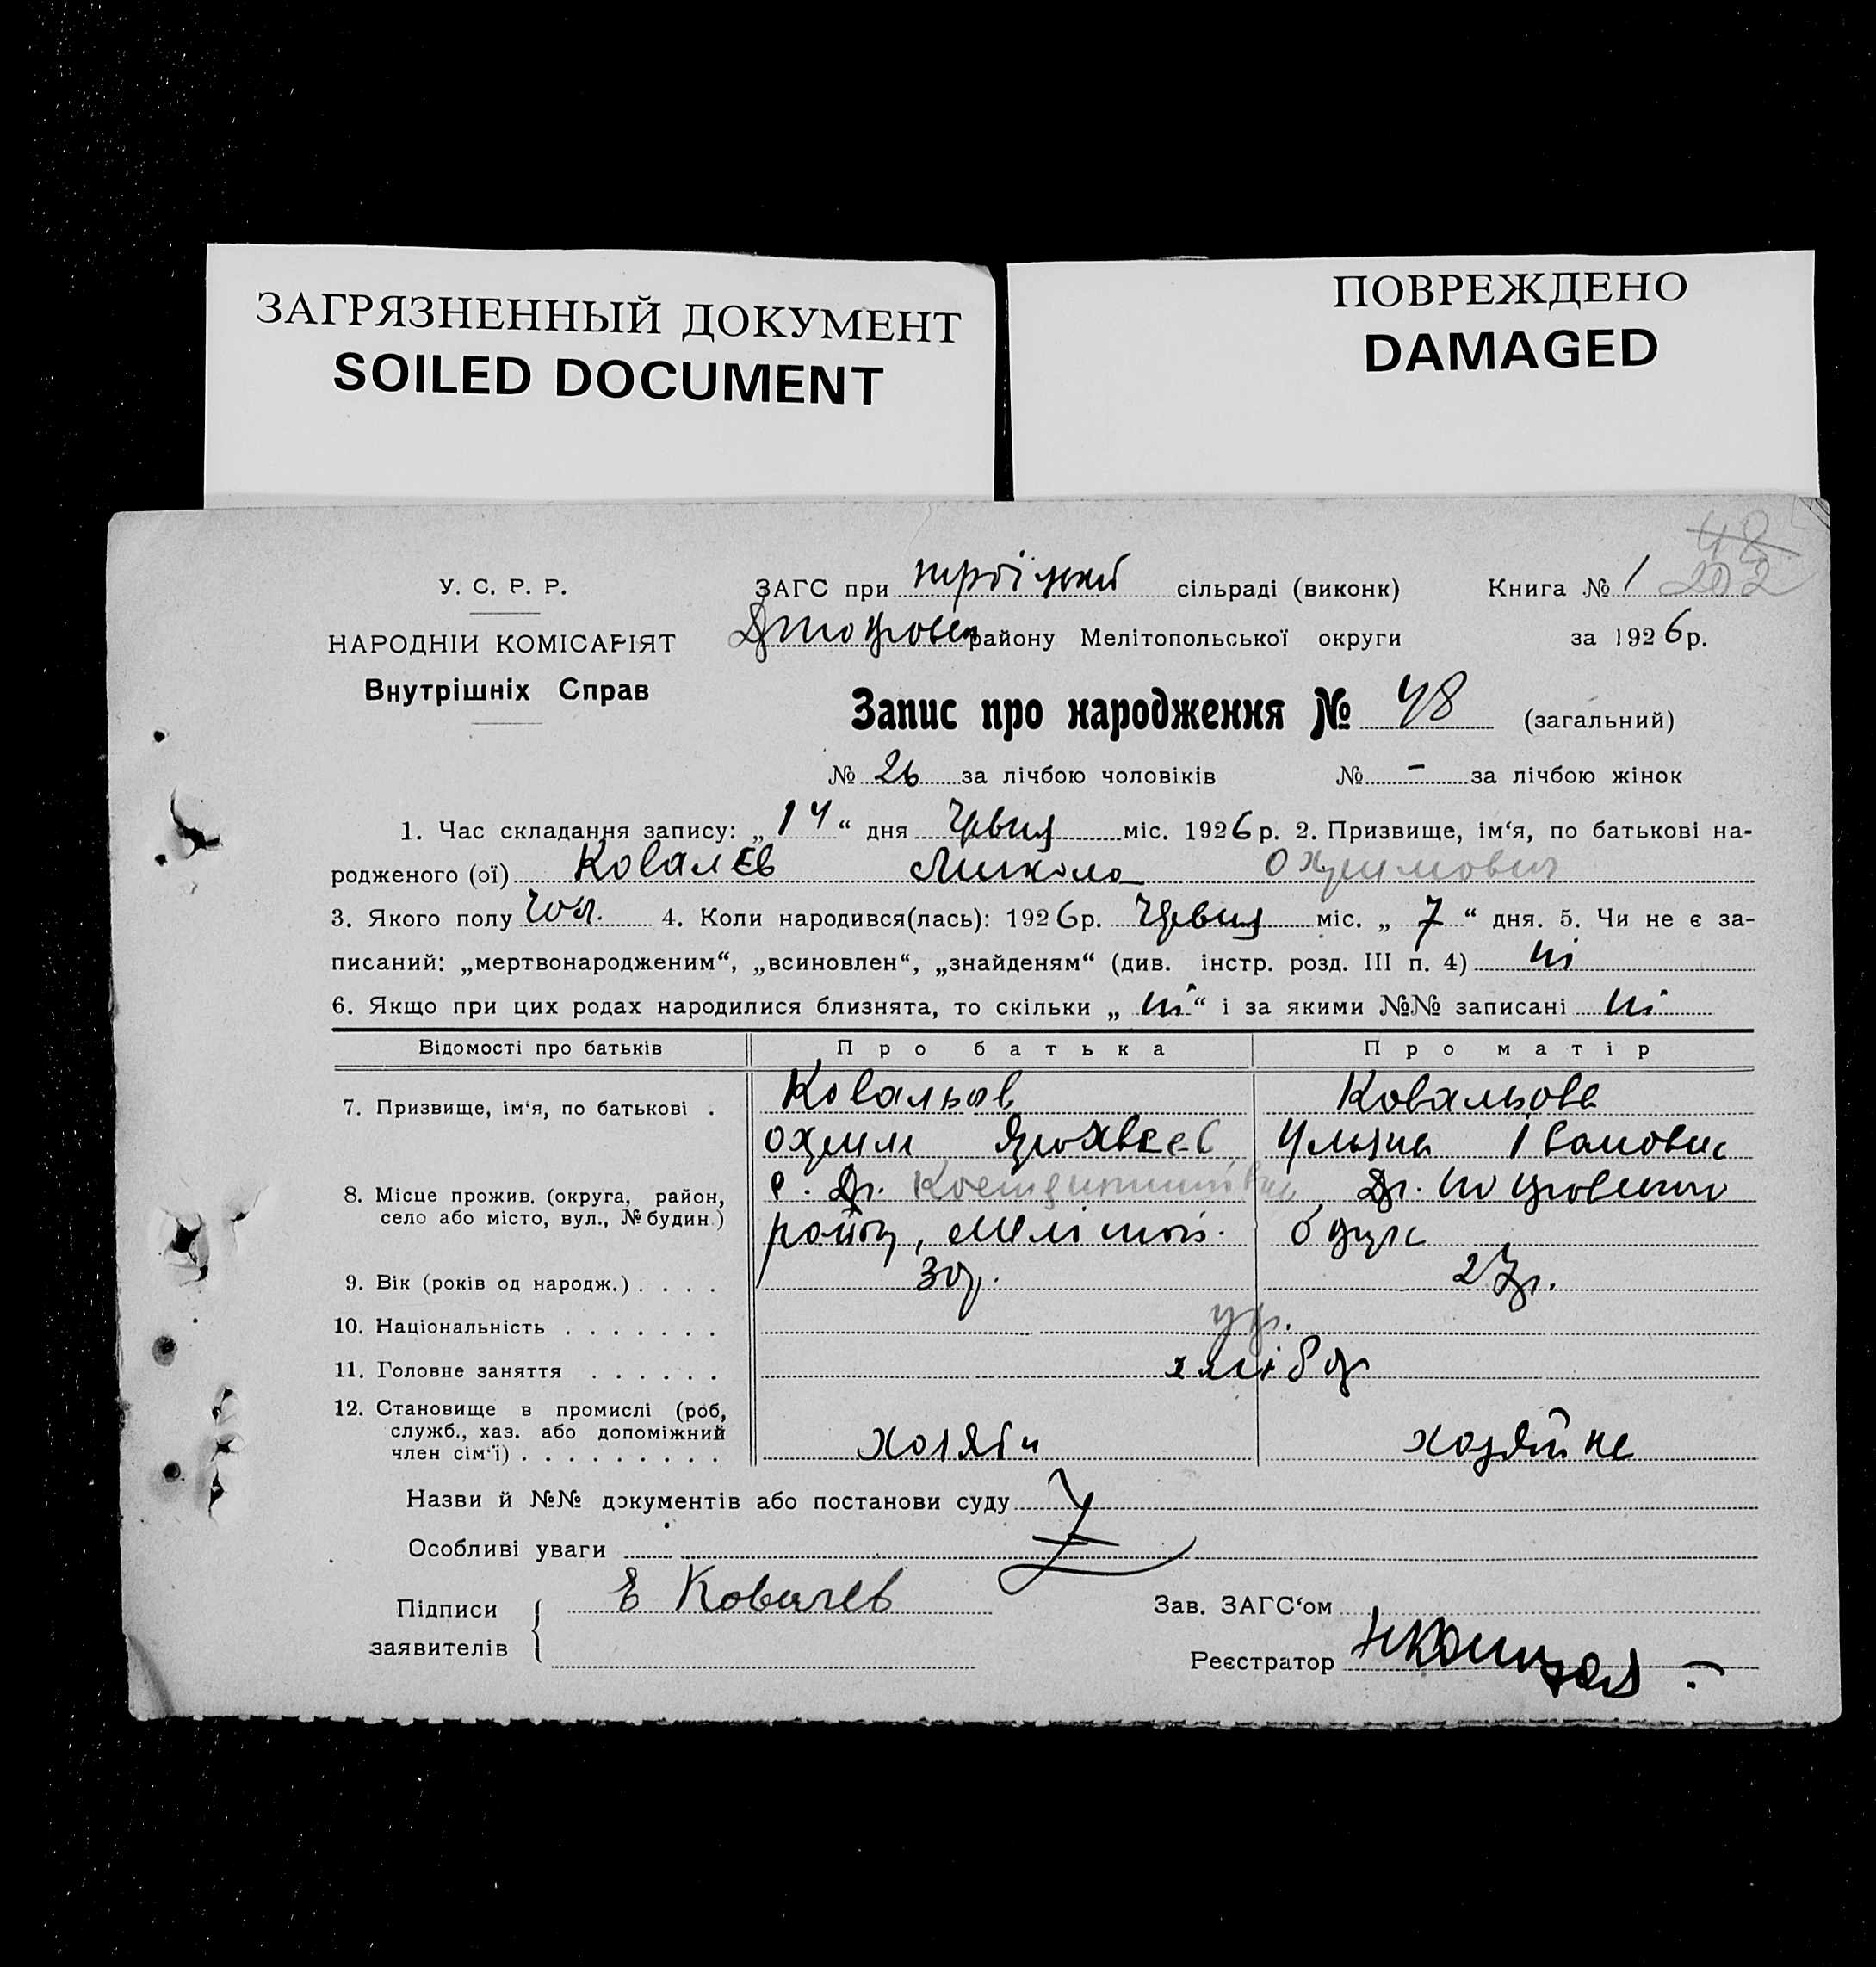 ЗАГРЯЗНЕННЫЙ ДОКУМЕНТ
SOILED DOCUMENT
ПОВРЕЖДЕНО
DAMAGED
48
202
У. С. Р. Р.
НАРОДНІЙ КОМІСАРІЯТ
Внутрішніх Справ
ЗАГС при сільраді (виконк) Книга № 1
району Мелітопольської округи за 1926 р.
Запис про народження № 48 (загальний)
№ 26 за лічбою чоловіків № - за лічбою жінок
1. Час складання запису: „14“ дня міс. 1926 р. 2. Призвище, ім‘я, по батькові на-
родженого (ої) Ковалєв Микола Охримович
3. Якого полу чол. 4. Коли народився(лась): 1926 р. міс. „7“ дня. 5. Чи не є за-
писаний: „мертвонародженим“, „всиновлен“, „знайденям“ (див. інстр. розд. III п. 4) ні
6. Якщо при цих родах народилися близнята, то скільки „ні“ і за якими №№ записані ні
Відомості про батьків Про батька Про матір
7. Призвище, ім‘я, по батькові . Ковальов Ковальова
Охрим Івановна
8. Місце прожив. (округа, район,
село або місто, вул., № будин.)
9. Вік (років од народж.) . . . . 30р. 27р.
10. Національність . . . . . . . укр.
11. Головне заняття . . . . . . хлібор
12. Становище в промислі (роб,
служб., хаз. або допоміжний
член сім‘ї) . . . . . . . . . хозяїн хозяйка
Назви й №№ документів або постанови суду
Особливі уваги
Підписи Е Ковалев Зав. ЗАГС‘ом
заявителів Реєстратор